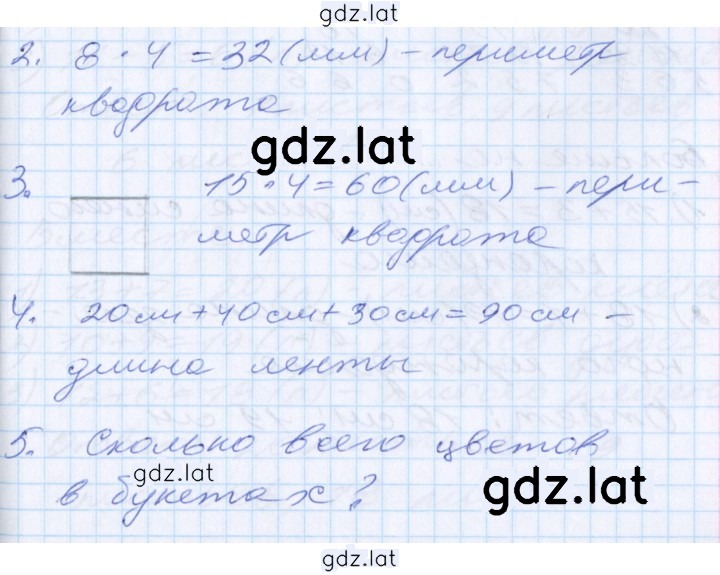 gdz.lat
2. 8 · 4 = 32 (мм) – периметр
квадрата
gdz.lat
3. 15 · 4 = 60 (мм) – пери–
метр квадрата
4. 20 см + 40 см + 30 см = 90 см –
длина ленты
5. Сколько всего цветов
gdz.lat
в букетах?
gdz.lat
gdz.lat